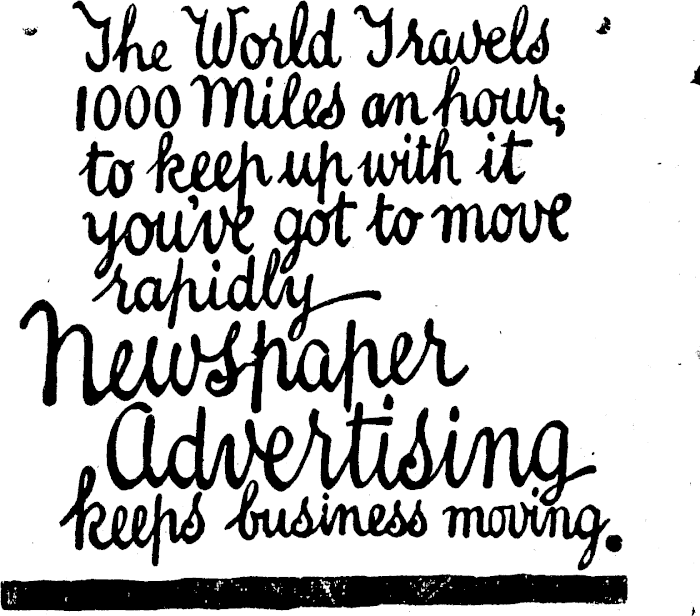 The World Travels
1000 Miles an hour;
to keep up with it
you've got to move
rapidly
Newspaper
Advertising
keeps business moving.